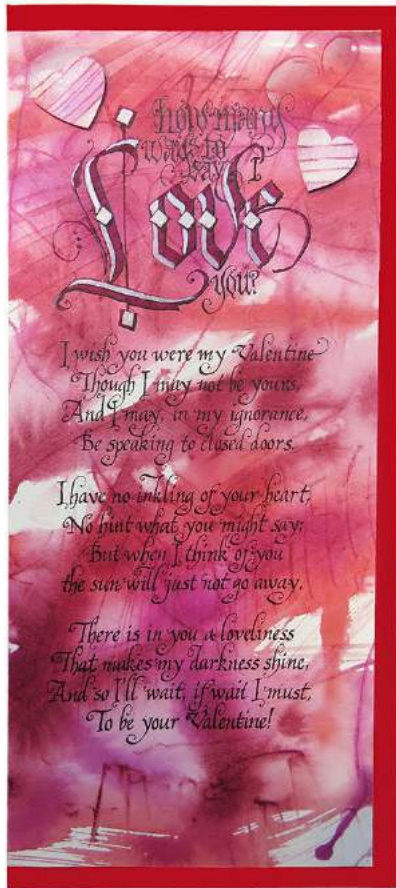 how many
ways to
say I
Love
you?
I wish you were my Valentine
Though I may not be yours,
And I may, in my ignorance,
Be speaking to closed doors.
I have no inkling of your heart,
No hint what you might say;
But when I think of you
the sun will just not go away.
There is in you a loveliness
That makes my darkness shine,
And so I'll wait, if wait I must,
To be your Valentine!